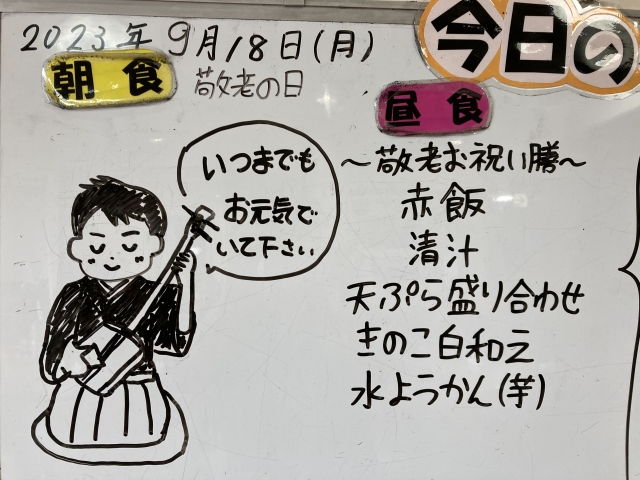 2023年9月18日(月)
今日の
朝食
敬老の日
昼食
いつまでも
お元気で
いて下さい
~敬老お祝い膳~
赤飯
清汁
天ぷら盛り合わせ
きのこ白和え
水ようかん(芋)